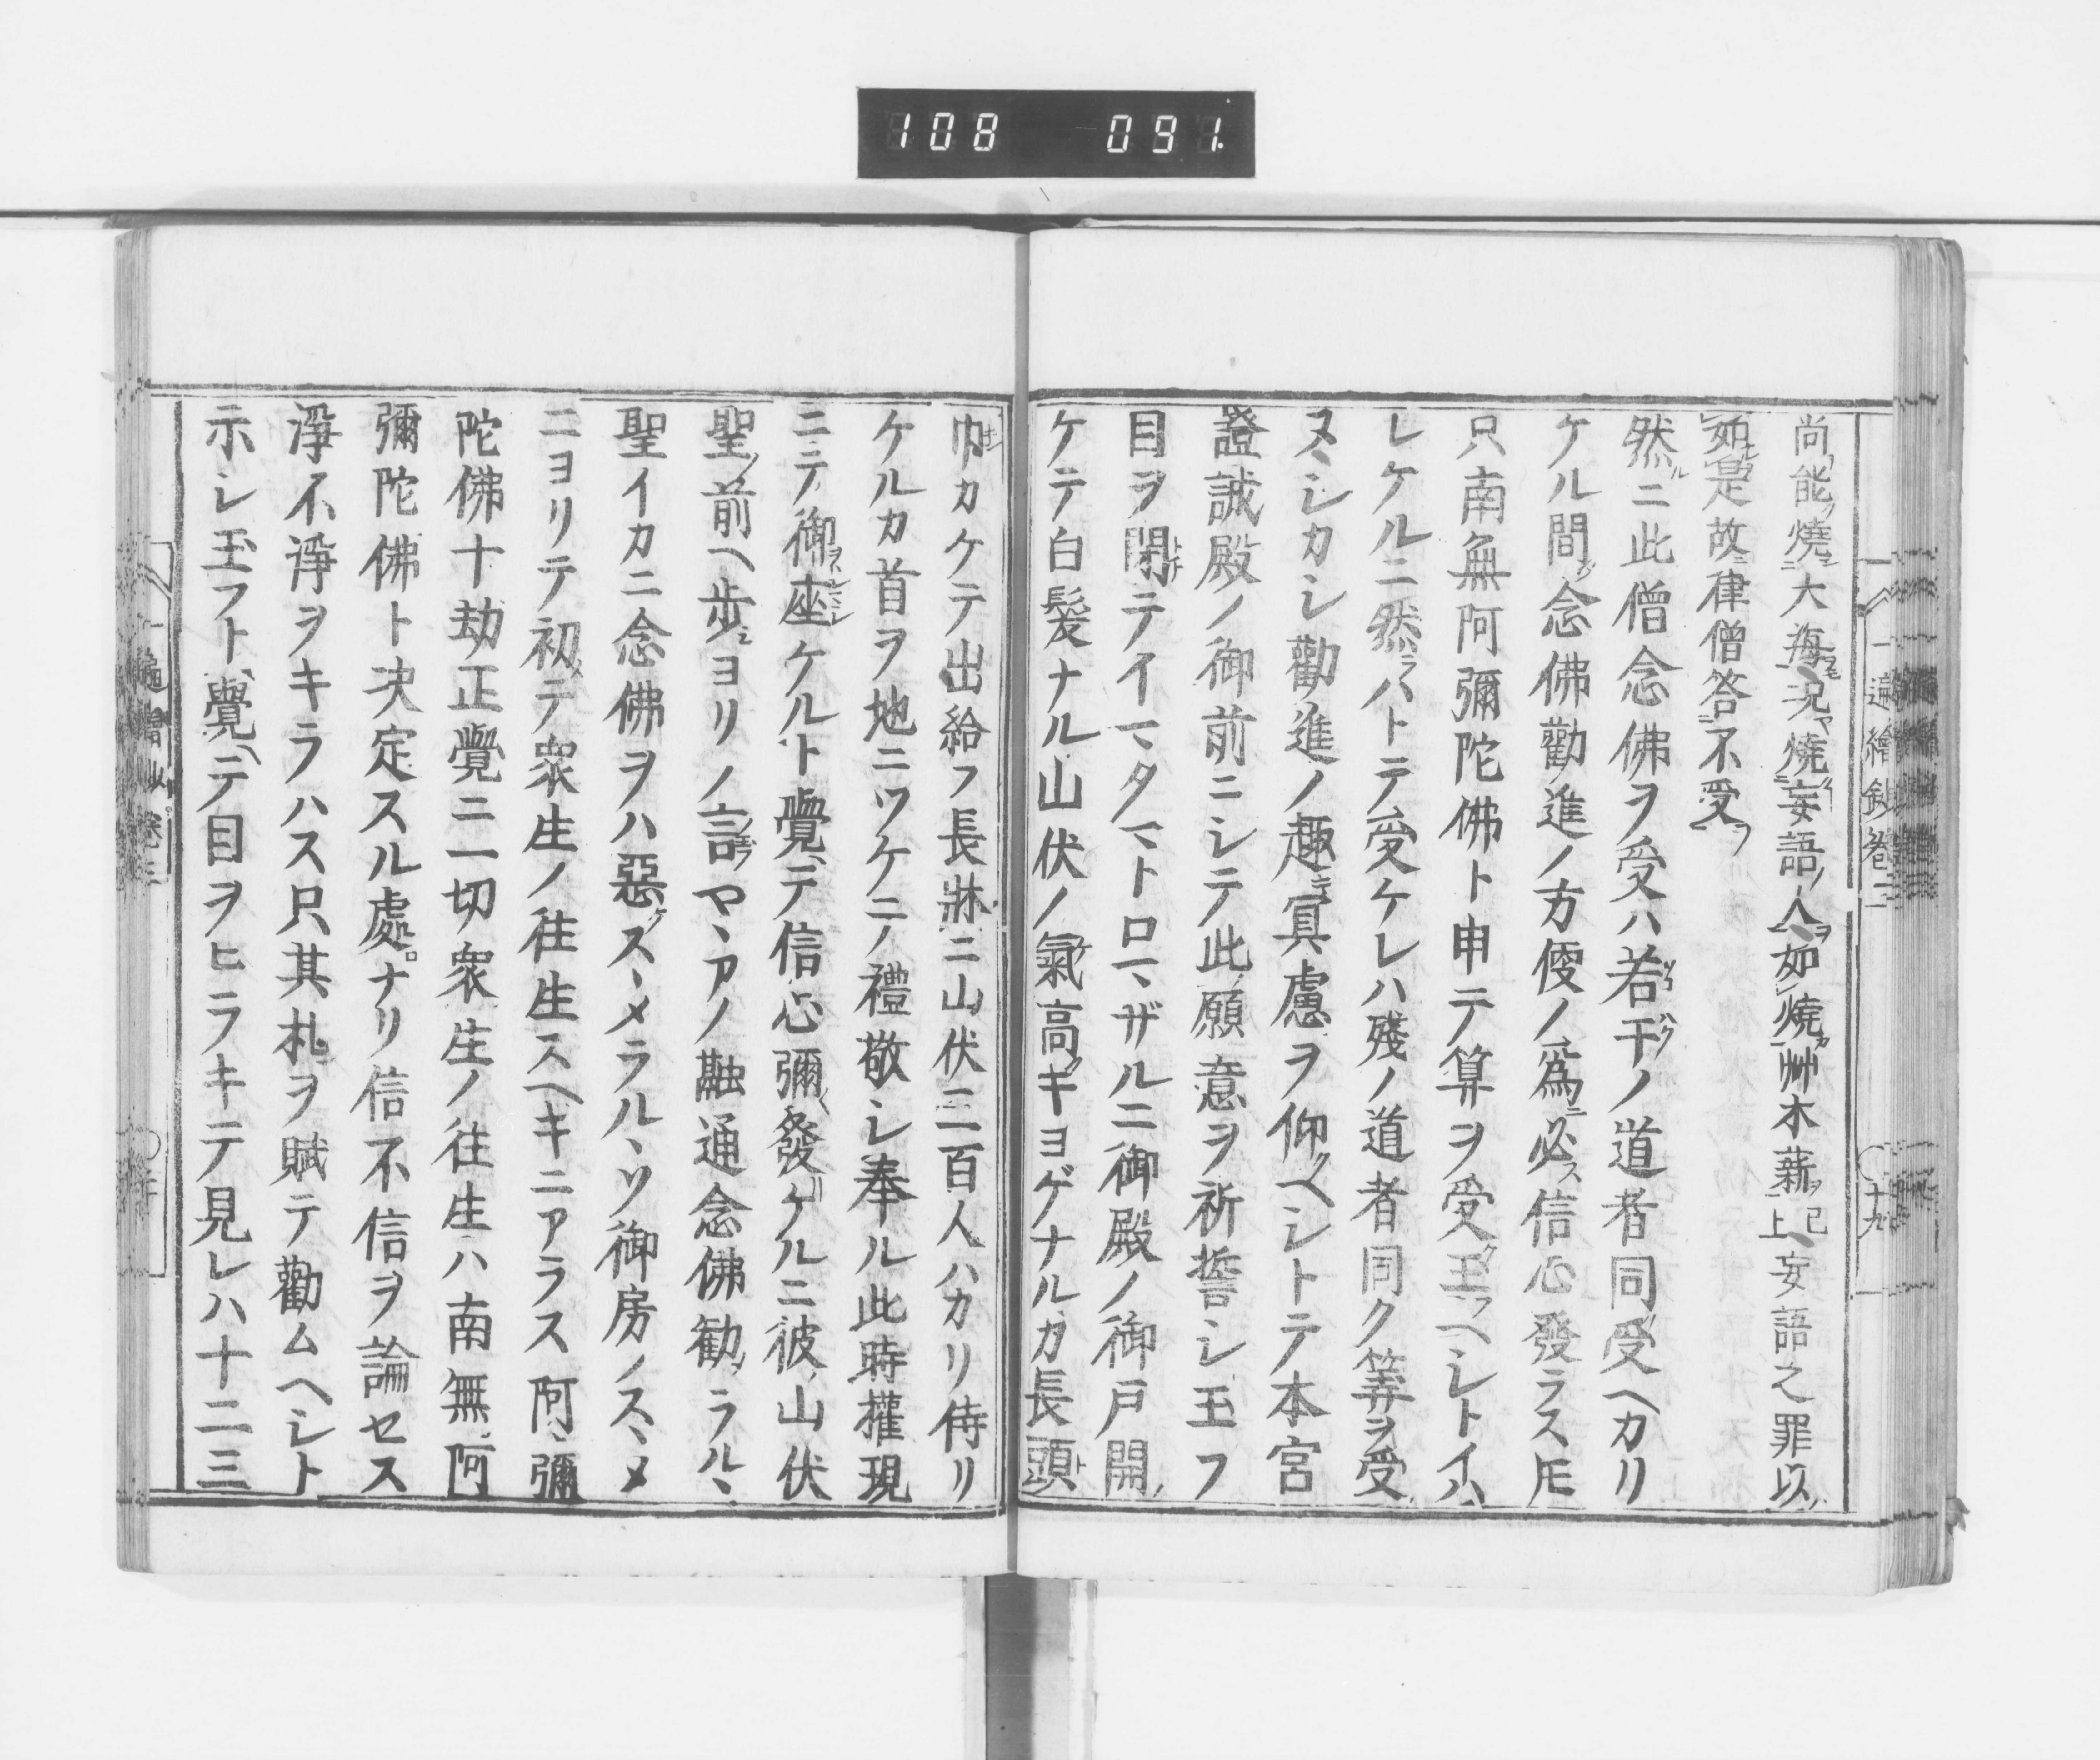 108 091
一遍繪鈔卷三 十九
尚能燒大海況燒妄語人如燒艸木薪已上妄語之罪以
如是故律僧答不受
然ニ此僧念佛ヲ受ハ若干ノ道者同受ヘカリ
ケル間念佛勸進ノ方便ノ爲必ス信心發ラス𪜈
只南無阿彌陀佛ト申テ算ヲ受玉フヘシトイハ
レケルニ然ラハトテ受ケレハ殘ノ道者同ク筭ヲ受
ヌシカシ勸進ノ趣冥慮ヲ仰クヘシトテ本宮
證誠殿ノ御前ニシテ此願意ヲ祈誓シ玉フ
目ヲ閉テイマタマトロマザルニ御殿ノ御戸開
ケテ白髮ナル山伏ノ氣高キヨゲナルカ長頭
巾カケテ出給フ長牀ニ山伏三百人ハカリ侍リ
ケルカ首ヲ地ニツケニノ禮敬シ奉ル此時權現
ニテ御座ケルト覺テ信心彌發ケルニ彼山伏
聖ノ前ヘ歩ヨリノ言マヽアノ融通念佛勸ラルヽ
聖イカニ念佛ヲハ惡クスヽメラルヽソ御房ノスヽメ
ニヨリテ初テ衆生ノ往生スヘキニアラス阿彌
陀佛十劫正覺ニ一切衆生ノ往生ハ南無阿
彌陀佛ト決定スル處ナリ信不信ヲ論セス
淨不淨ヲキラハス只其札ヲ賦テ勸ムヘシト
示シ玉フト覺テ目ヲヒラキテ見レハ十二三